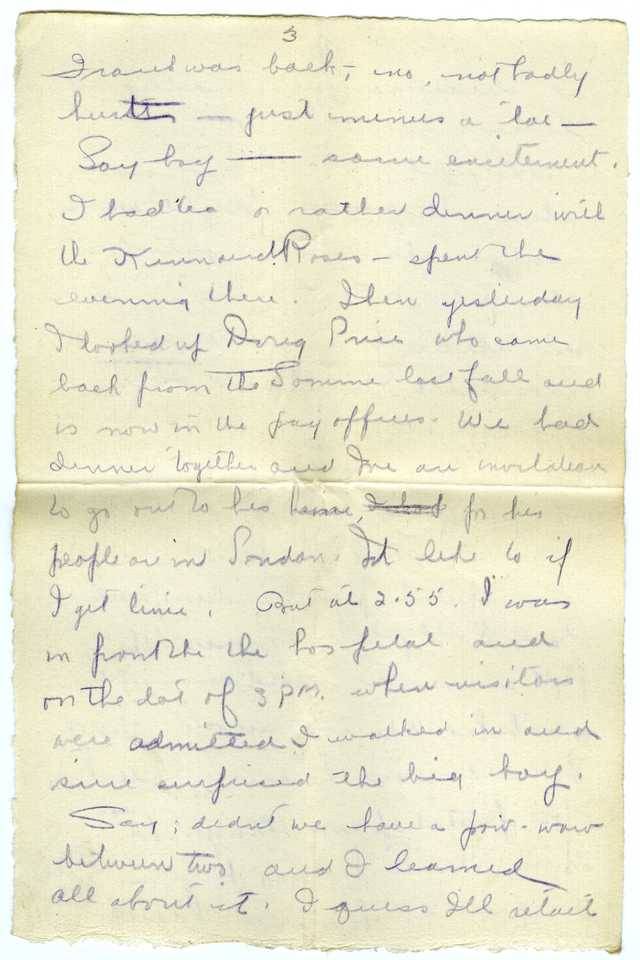 3
Frank was back, no, not badly
hurt — just minus a toe —
Say boy — some excitement.
I had tea or rather dinner with
the Kinnaird Roses — spent the
evening there. Then yesterday
I looked up Doug Price who came
back from the Somme last fall and
is now in the pay offices. We had
dinner together and I've an invitation
to go out to his home, for his
people are in London. I'd like to if
I get time. But at 2.55. I was
in front the the hospital and
on the dot of 3 p.m. when visitors
were admitted. I walked in and
sure surprised the big boy.
Say; didn't we have a pow-wow
between two and I learned
all about it. I guess I'll